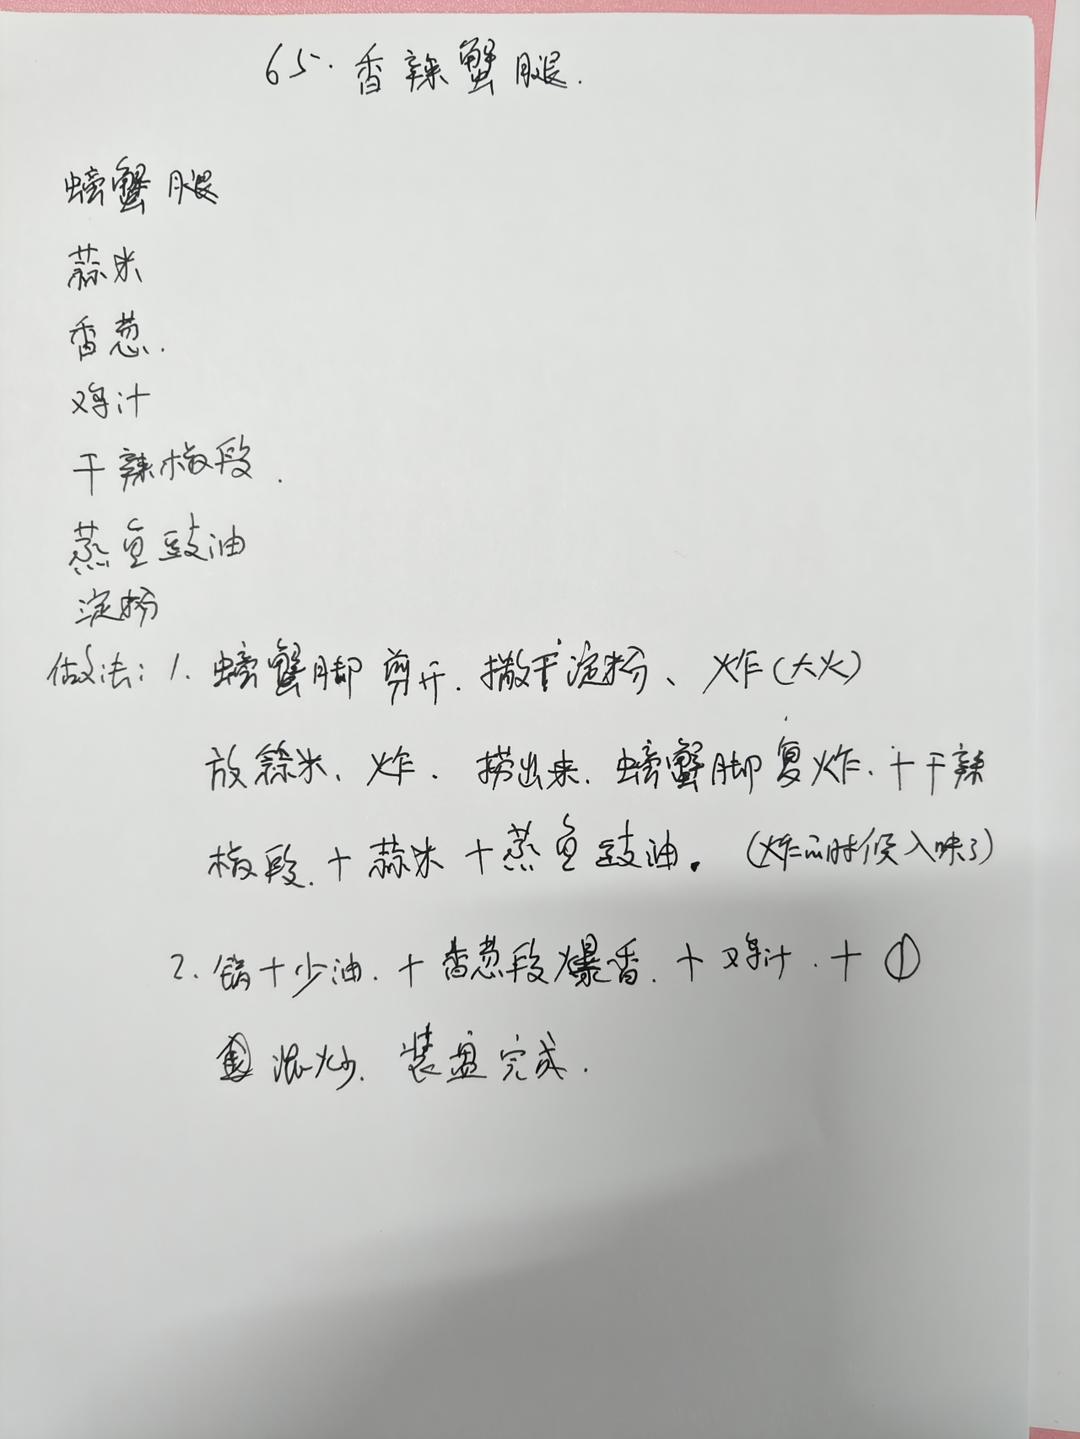 65.香辣蟹腿.
螃蟹腿
蒜米
香葱.
鸡汁
干辣椒段.
蒸鱼豉油
淀粉
做法:1.螃蟹脚剪开.撒干淀粉、炸(大火)
放蒜米、炸.捞出来.螃蟹脚复炸.+干辣
椒段.+蒜米+蒸鱼豉油。(炸的时候入味了)
2.锅+少油.+香葱段爆香.+鸡汁.+①
混炒.装盘完成.